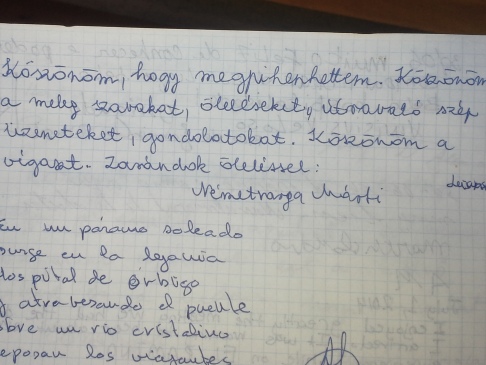 Köszönöm, hogy megpihenhettem. Köszönöm
a meleg szavakat, öleléseket, útravaló szép
üzeneteket, gondolatokat. Köszönöm a
vigaszt. Zarándok öleléssel:
Németvarga Márti
En un páramo soleado
surge en la lejanía
Hospital de Órbigo
y atravesando el puente
sobre un río cristalino
reposan los viajantes